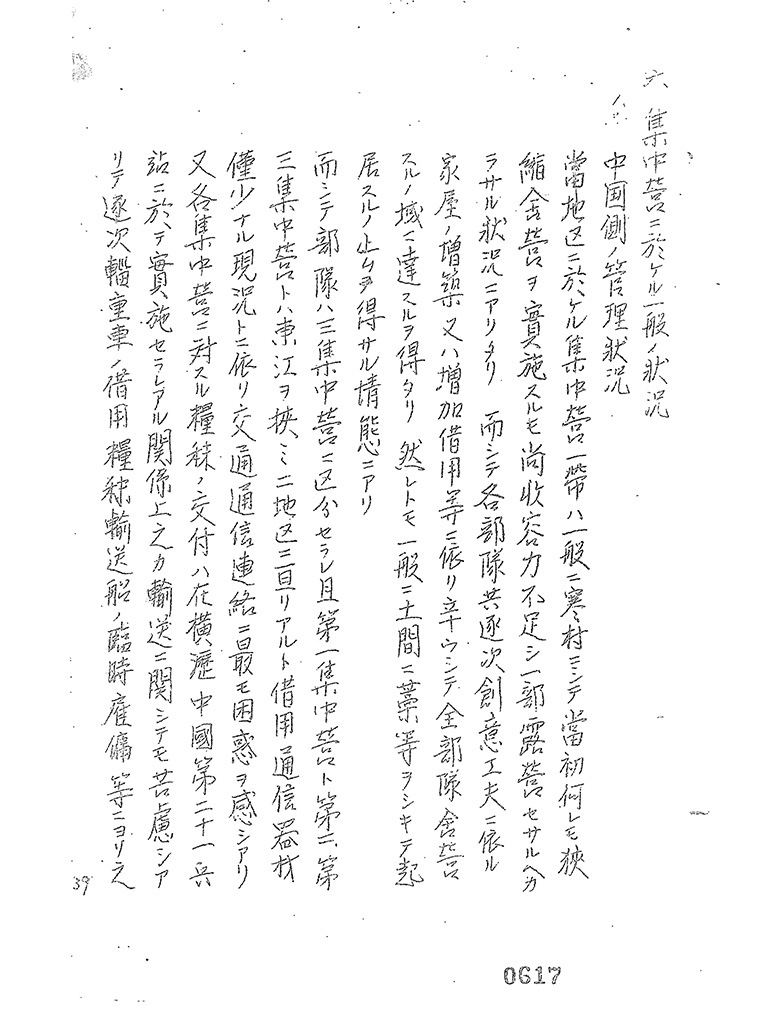 六、集中営ニ於ケル一般ノ状況
八、中国側ノ管理状況
當地区ニ於ケル集中営一帶ハ一般ニ寒村ニシテ當初何レモ狹
縮舎営ヲ實施スルモ尚收容力不足シ一部露営セサルヘカ
ラサル狀况ニアリタリ 而シテ各部隊共逐次創意工夫ニ依ル
家屋ノ増築又ハ増加借用等ニ依リ辛ウシテ全部隊舎営
スルノ域ニ達スルヲ得タリ 然レトモ一般ニ土間ニ藁等ヲシキテ起
居スルノ止ムヲ得サル情態ニアリ
而シテ部隊ハ三集中営ニ区分セラレ且第一集中営ト第二、第
三集中営トハ東江ヲ挾ミ二地区ニ亘リアルト借用通信器材
僅少ナル現況トニ依リ交通通信連絡ニ最モ困惑ヲ感シアリ
又各集中営ニ対スル糧秣ノ交付ハ在橫瀝中國第二十一兵
站ニ於テ實施セラレアル関係上之カ輸送ニ関シテモ苦慮シア
リテ逐次輜重車ノ借用糧秣輸送船ノ臨時雇傭等ニヨリ之
39
0617